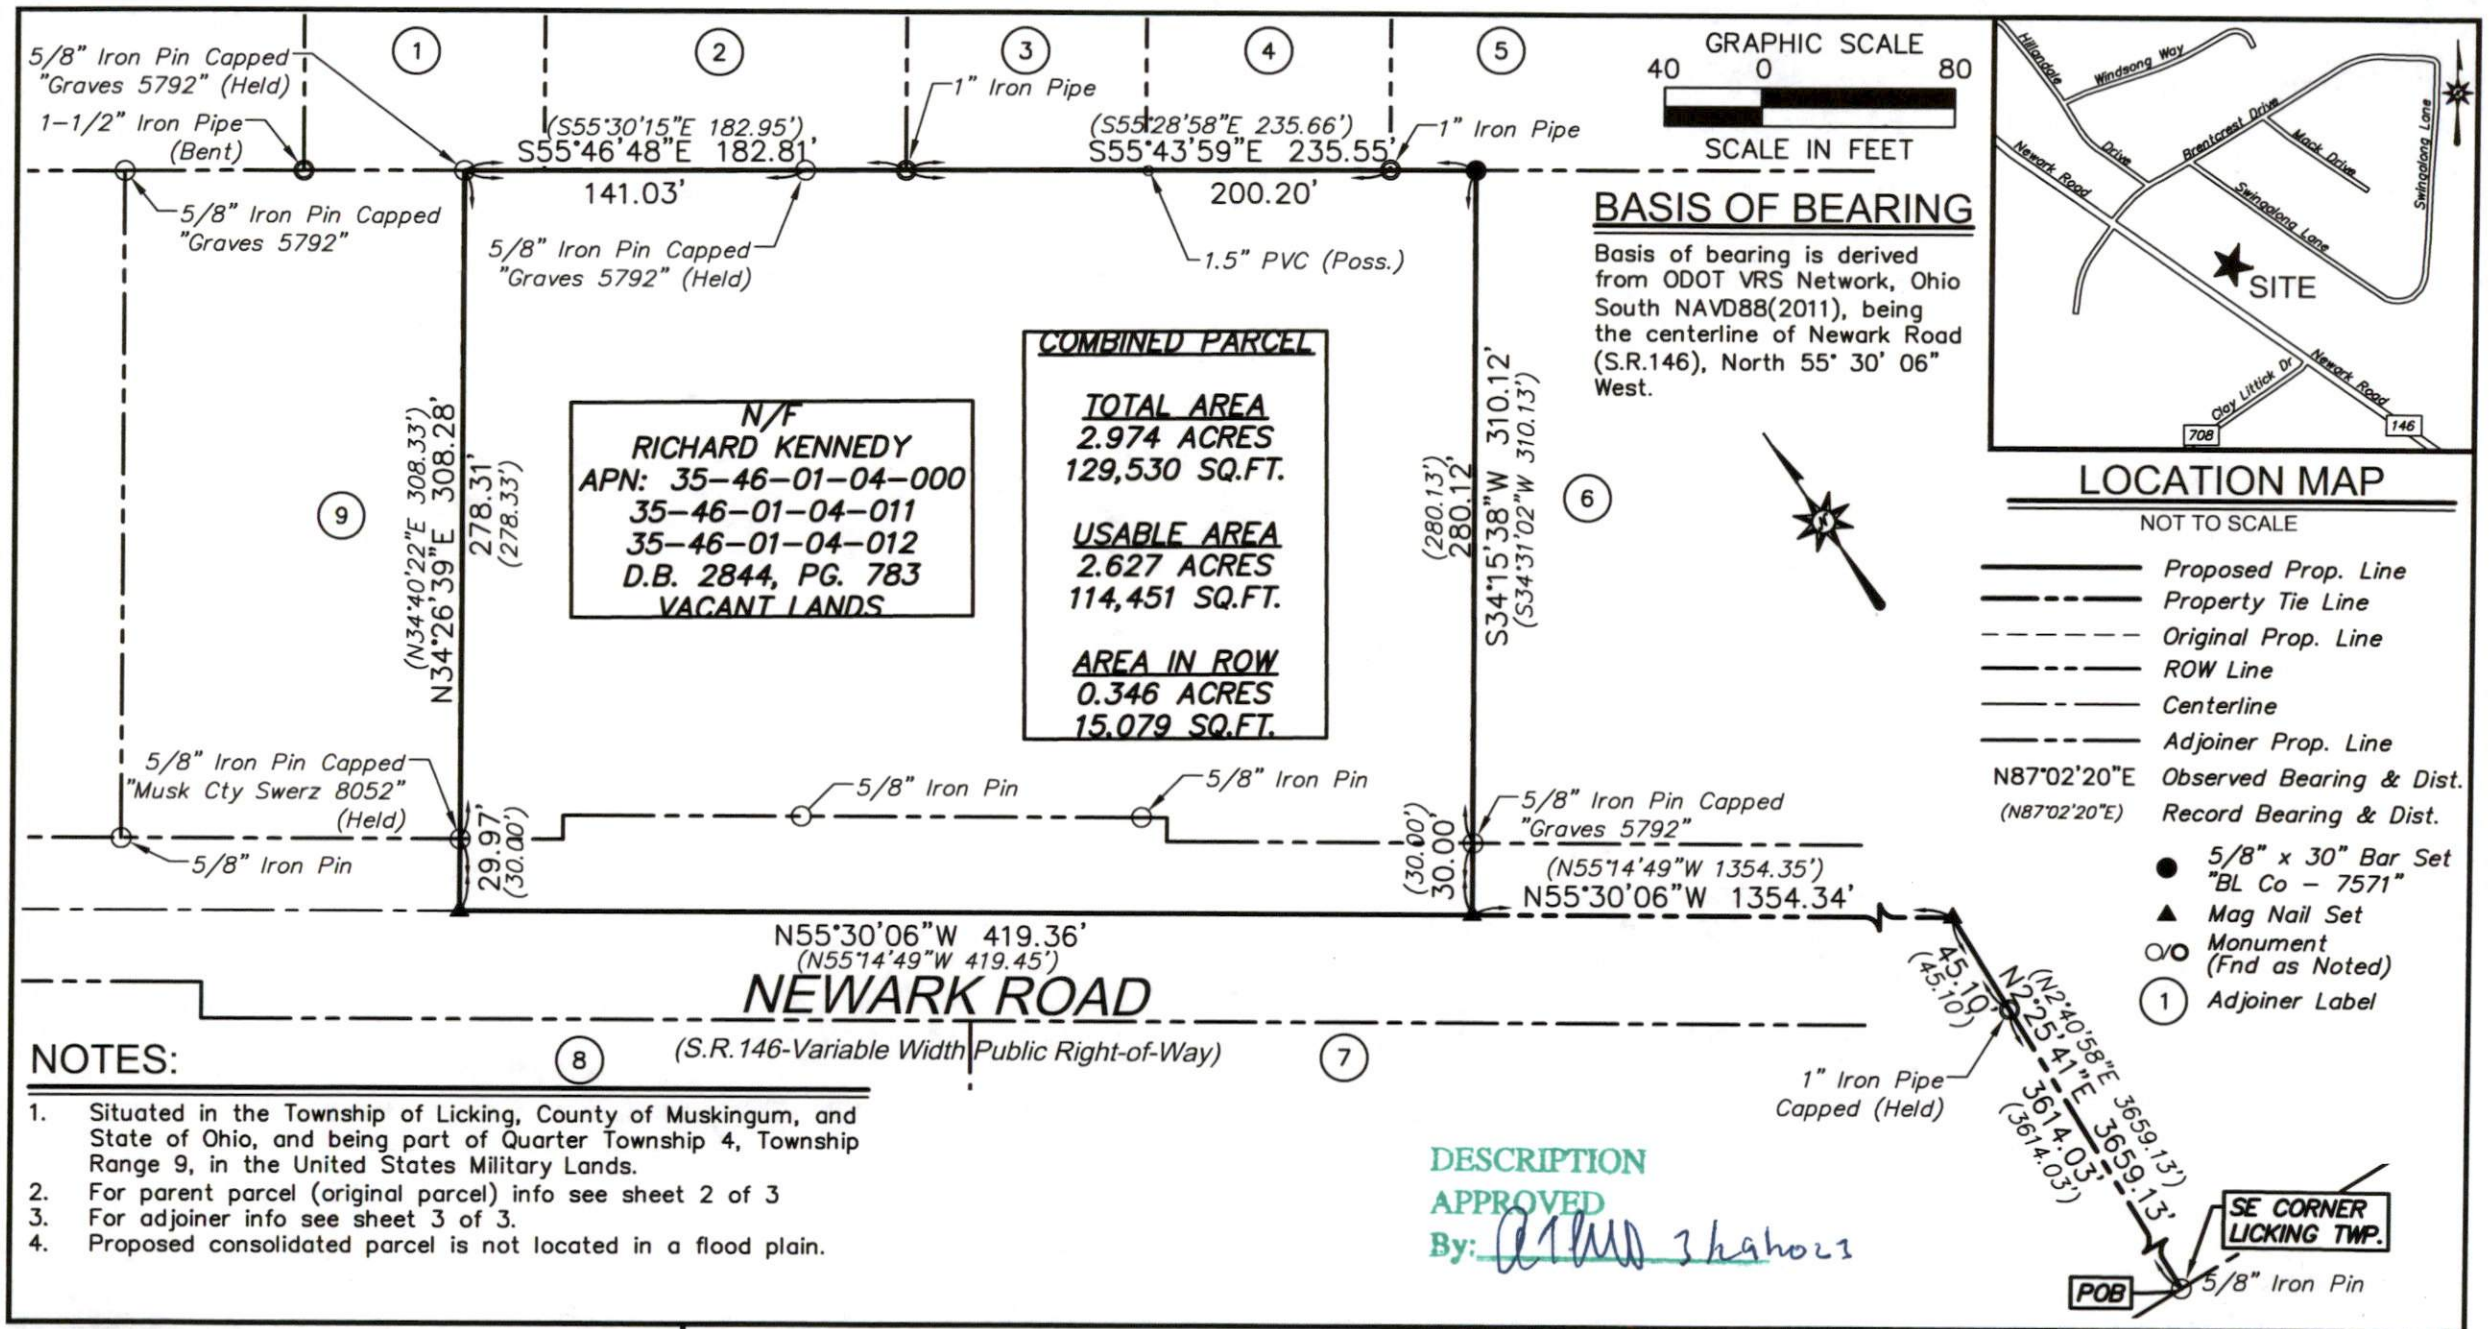 5/8" Iron Pin Capped
"Graves 5792" (Held)
1-1/2" Iron Pipe
(Bent)
1
2
3
4
5
1" Iron Pipe
(S55°30'15"E 182.95')
S55°46'48"E 182.81'
141.03'
(S55°28'58"E 235.66')
S55°43'59"E 235.55'
200.20'
1" Iron Pipe
5/8" Iron Pin Capped
"Graves 5792"
5/8" Iron Pin Capped
"Graves 5792" (Held)
1.5" PVC (Poss.)
GRAPHIC SCALE
40 0 80
SCALE IN FEET
BASIS OF BEARING
Basis of bearing is derived
from ODOT VRS Network, Ohio
South NAVD88(2011), being
the centerline of Newark Road
(S.R.146), North 55° 30' 06"
West.
Hillandale
Drive
Windsong Way
Brentcrest Drive
Mack Drive
Swingalong Lane
Swingalong Lane
Newark Road
SITE
Newark Road
Clay Littick Dr
708
146
LOCATION MAP
NOT TO SCALE
Proposed Prop. Line
Property Tie Line
Original Prop. Line
ROW Line
Centerline
Adjoiner Prop. Line
N87°02'20"E Observed Bearing & Dist.
(N87°02'20"E) Record Bearing & Dist.
5/8" x 30" Bar Set
"BL Co - 7571"
Mag Nail Set
Monument
(Fnd as Noted)
1 Adjoiner Label
N
(N34°40'22"E 308.33')
N34°26'39"E 308.28'
278.31'
(278.33')
9
N/F
RICHARD KENNEDY
APN: 35-46-01-04-000
35-46-01-04-011
35-46-01-04-012
D.B. 2844, PG. 783
VACANT LANDS
COMBINED PARCEL
TOTAL AREA
2.974 ACRES
129,530 SQ.FT.
USABLE AREA
2.627 ACRES
114,451 SQ.FT.
AREA IN ROW
0.346 ACRES
15,079 SQ.FT.
(280.13')
280.12'
S34°15'38"W 310.12'
(S34°31'02"W 310.13')
6
5/8" Iron Pin Capped
"Musk Cty Swerz 8052"
(Held)
5/8" Iron Pin
29.97'
(30.00')
5/8" Iron Pin
5/8" Iron Pin
(30.00')
30.00'
5/8" Iron Pin Capped
"Graves 5792"
(N55°14'49"W 1354.35')
N55°30'06"W 1354.34'
N55°30'06"W 419.36'
(N55°14'49"W 419.45')
NEWARK ROAD
(S.R.146-Variable Width Public Right-of-Way)
8
7
45.10'
(45.10')
(N2°40'58"E 3659.13')
N2°25'41"E 3659.13'
3614.03'
(3614.03')
1" Iron Pipe
Capped (Held)
SE CORNER
LICKING TWP.
POB
5/8" Iron Pin
NOTES:
1. Situated in the Township of Licking, County of Muskingum, and
State of Ohio, and being part of Quarter Township 4, Township
Range 9, in the United States Military Lands.
2. For parent parcel (original parcel) info see sheet 2 of 3
3. For adjoiner info see sheet 3 of 3.
4. Proposed consolidated parcel is not located in a flood plain.
DESCRIPTION
APPROVED
By: